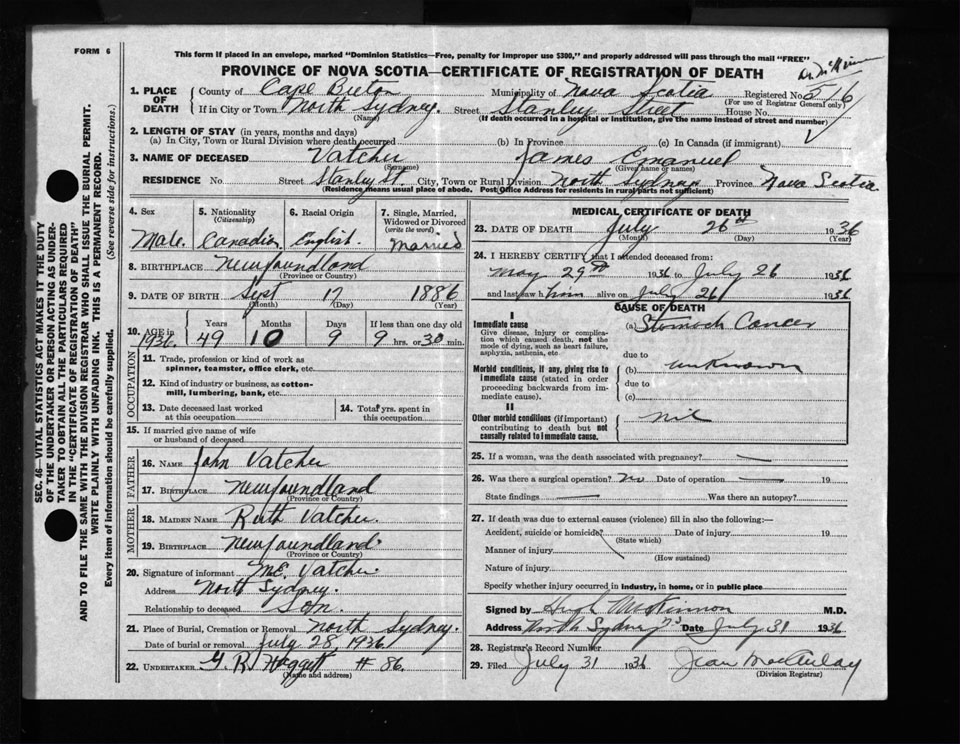 FORM 6
This form if placed in an envelope, marked "Dominion Statistics—Free, penalty for improper use $300," and properly addressed will pass through the mail "FREE"
Dr McKinnon
PROVINCE OF NOVA SCOTIA—CERTIFICATE OF REGISTRATION OF DEATH
1. PLACE OF DEATH
County of Cape Breton Municipality of Nova Scotia Registered No. 516
(For use of Registrar General only)
If in City or Town North Sydney. Street Stanley Street House No.
(Name) (If death occurred in a hospital or institution, give the name instead of street and number)
2. LENGTH OF STAY (in years, months and days)
(a) In City, Town or Rural Division where death occurred (b) In Province (c) In Canada (if immigrant)
3. NAME OF DECEASED Vatcher James Emanuel
(Surname) (Given name or names)
RESIDENCE No. Street Stanley St. City, Town or Rural Division North Sydney Province Nova Scotia
(Residence means usual place of abode. Post Office Address for residents in rural parts not sufficient)
4. Sex
Male.
5. Nationality
(Citizenship)
Canadian
6. Racial Origin
English.
7. Single, Married, Widowed or Divorced
(write the word)
Married
8. BIRTHPLACE Newfoundland
(Province or Country)
9. DATE OF BIRTH Sept 17 1886
(Month) (Day) (Year)
10. AGE in 1936
Years Months Days If less than one day old
49 10 9 9 hrs. or 30 min.
OCCUPATION
11. Trade, profession or kind of work as spinner, teamster, office clerk, etc.
12. Kind of industry or business, as cotton-mill, lumbering, bank, etc.
13. Date deceased last worked at this occupation
14. Total yrs. spent in this occupation
15. If married give name of wife or husband of deceased
FATHER
16. NAME John Vatcher
17. BIRTHPLACE Newfoundland
(Province or Country)
MOTHER
18. MAIDEN NAME Ruth Vatcher.
19. BIRTHPLACE Newfoundland
(Province or Country)
20. Signature of informant M.E. Vatcher
Address North Sydney.
Relationship to deceased Son.
21. Place of Burial, Cremation or Removal North Sydney.
Date of burial or removal July 28, 1936
22. UNDERTAKER G. R. Haggett # 86.
(Name and address)
MEDICAL CERTIFICATE OF DEATH
23. DATE OF DEATH July 26th 1936
(Month) (Day) (Year)
24. I HEREBY CERTIFY that I attended deceased from:
May 29th 1936 to July 26 1936
and last saw him alive on July 26 1936
CAUSE OF DEATH
I
Immediate cause
Give disease, injury or complication which caused death, not the mode of dying, such as heart failure, asphyxia, asthenia, etc.
(a) Stomach Cancer
due to
Morbid conditions, if any, giving rise to immediate cause (stated in order proceeding backwards from immediate cause).
(b) unknown
due to
(c)
II
Other morbid conditions (if important) contributing to death but not causally related to immediate cause.
nil
25. If a woman, was the death associated with pregnancy? —
26. Was there a surgical operation? No Date of operation — 19
State findings — Was there an autopsy?
27. If death was due to external causes (violence) fill in also the following:—
Accident, suicide or homicide? Date of injury 19
(State which)
Manner of injury
(How sustained)
Nature of injury
Specify whether injury occurred in industry, in home, or in public place
Signed by Hugh McKinnon M.D.
Address North Sydney N.S Date July 31 1936
28. Registrar's Record Number
29. Filed July 31 1936 Jean MacAulay
(Division Registrar)
SEC. 46—VITAL STATISTICS ACT MAKES IT THE DUTY OF THE UNDERTAKER OR PERSON ACTING AS UNDERTAKER TO OBTAIN ALL THE PARTICULARS REQUIRED IN THE "CERTIFICATE OF REGISTRATION OF DEATH"
AND TO FILE THE SAME WITH THE DIVISION REGISTRAR WHO SHALL ISSUE THE BURIAL PERMIT.
WRITE PLAINLY WITH UNFADING INK. THIS IS A PERMANENT RECORD.
Every item of information should be carefully supplied. (See reverse side for instructions.)